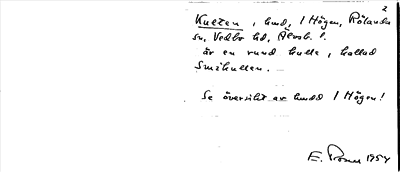 2
Kullen, hmd, 1 Högen, Rölanda
sn, Vedbo hd, Älvsb. l.
är en rund kulle, kallad
Smékullen.
Se översikt av hmdd 1 Högen!
E. 1954